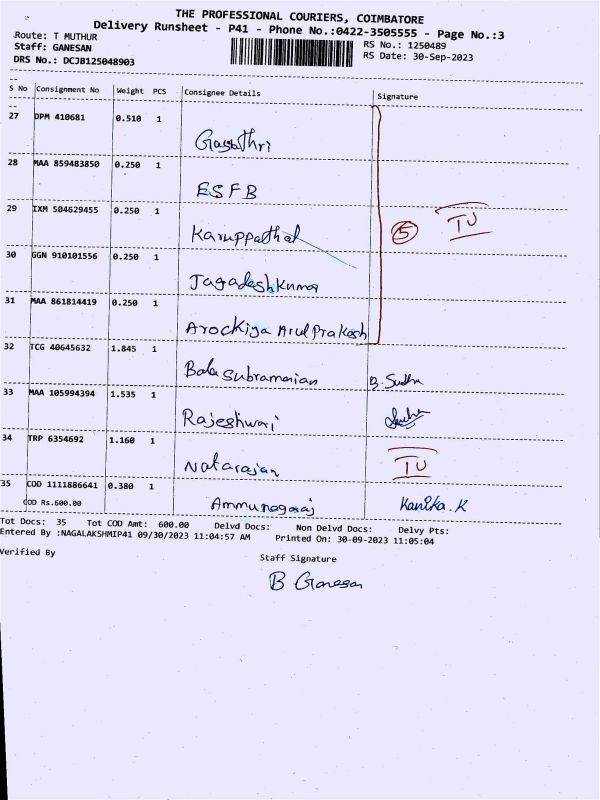 THE PROFESSIONAL COURIERS, COIMBATORE
Delivery Runsheet - P41 - Phone No.:0422-3505555 - Page No.:3
Route: T MUTHUR
RS No.: 1250489
Staff: GANESAN
RS Date: 30-Sep-2023
DRS No.: DCJB125048903
S No Consignment No Weight PCS Consignee Details Signature
27 DPM 410681 0.510 1
Gayathri
28 MAA 859483850 0.250 1
ESFB
29 IXM 504629455 0.250 1
Karuppathal
5 TU
30 GGN 910101556 0.250 1
Jagadeshkumar
31 MAA 861814419 0.250 1
Arockiya Arul Prakash
32 TCG 40645632 1.845 1
Balasubramanian B. Sudha
33 MAA 105994394 1.535 1
Rajeshwari
34 TRP 6354692 1.160 1
Natarajan TU
35 COD 1111886641 0.380 1
COD Rs.600.00 Ammunagaraj Kanika.K
Tot Docs: 35 Tot COD Amt: 600.00 Delvd Docs: Non Delvd Docs: Delvy Pts:
Entered By :NAGALAKSHMIP41 09/30/2023 11:04:57 AM Printed On: 30-09-2023 11:05:04
Verified By
Staff Signature
B Ganesan